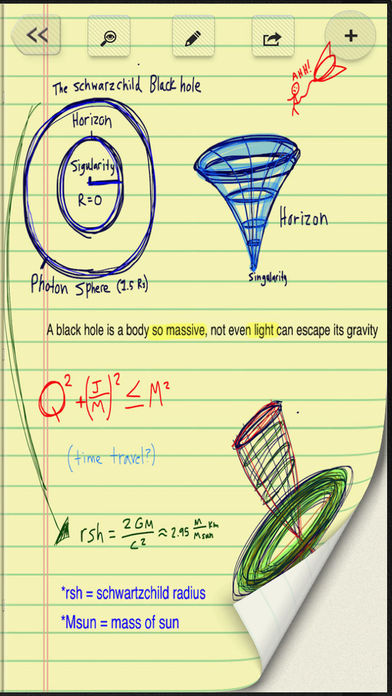 AHH!
The schwarzchild Black hole
Horizon
Sigularity
R=0
Photon Sphere (1.5 Rs)
Horizon
Singularity
A black hole is a body so massive, not even light can escape its gravity
Q² + (J/M)² ≤ M²
(time travel?)
rsh = 2GM/c² ≈ 2.95 M/Msun Km
*rsh = schwartzchild radius
*Msun = mass of sun